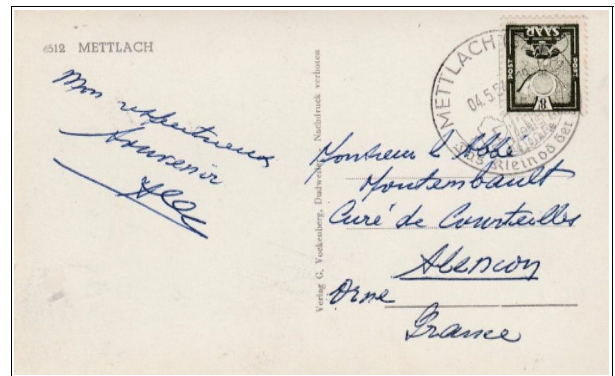 6512 METTLACH
Mon respectueux
Souvenir
Verlag G. Vockenberg, Dudweiler, Nachdruck verboten
METTLACH
04.5.5
das Kleinod der
SAAR
POST
POST
Monsieur l'Abbé
Montembault
Curé de Courteilles
Alençon
Orne
France